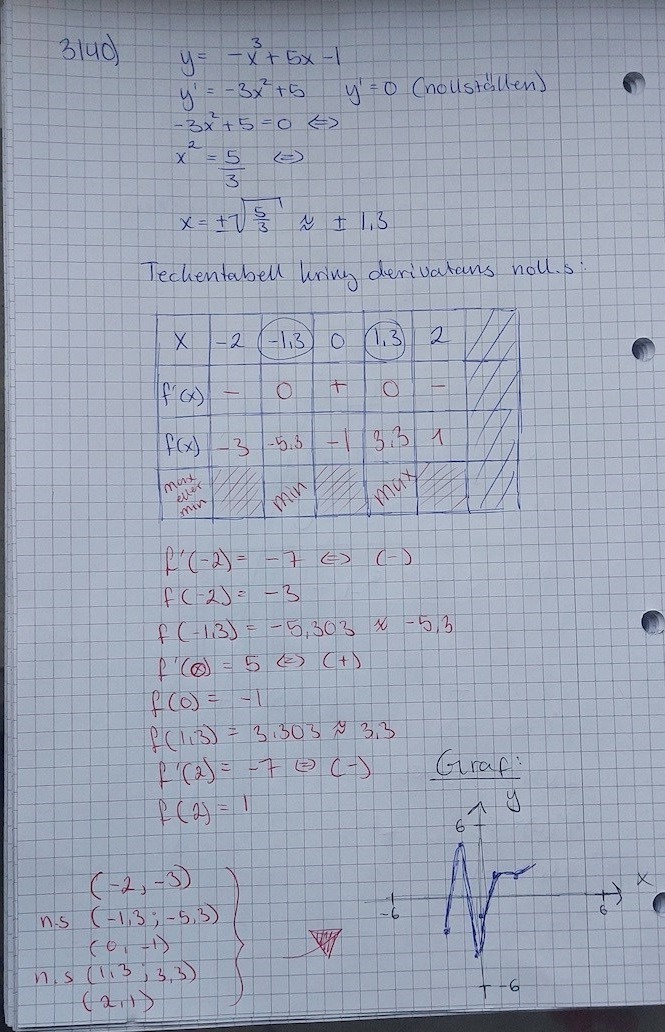 3140)
y = -x³ + 5x - 1
y' = -3x² + 5   y' = 0 (nollställen)
-3x² + 5 = 0 ⇔
x² = 5/3 ⇔
x = ±√(5/3) ≈ ± 1,3
Teckentabell kring derivatans noll.s:
x -2 -1,3 0 1,3 2
f'(x) - 0 + 0 -
f(x) -3 -5,3 -1 3,3 1
max eller min min max
f'(-2) = -7 ⇔ (-)
f(-2) = -3
f(-1,3) = -5,303 ≈ -5,3
f'(0) = 5 ⇔ (+)
f(0) = -1
f(1,3) = 3,303 ≈ 3,3
f'(2) = -7 ⇔ (-)
f(2) = 1
Graf:
y
6
x
-6
6
-6
(-2, -3)
n.s (-1,3 ; -5,3)
(0, -1)
n.s (1,3 ; 3,3)
(2, 1)